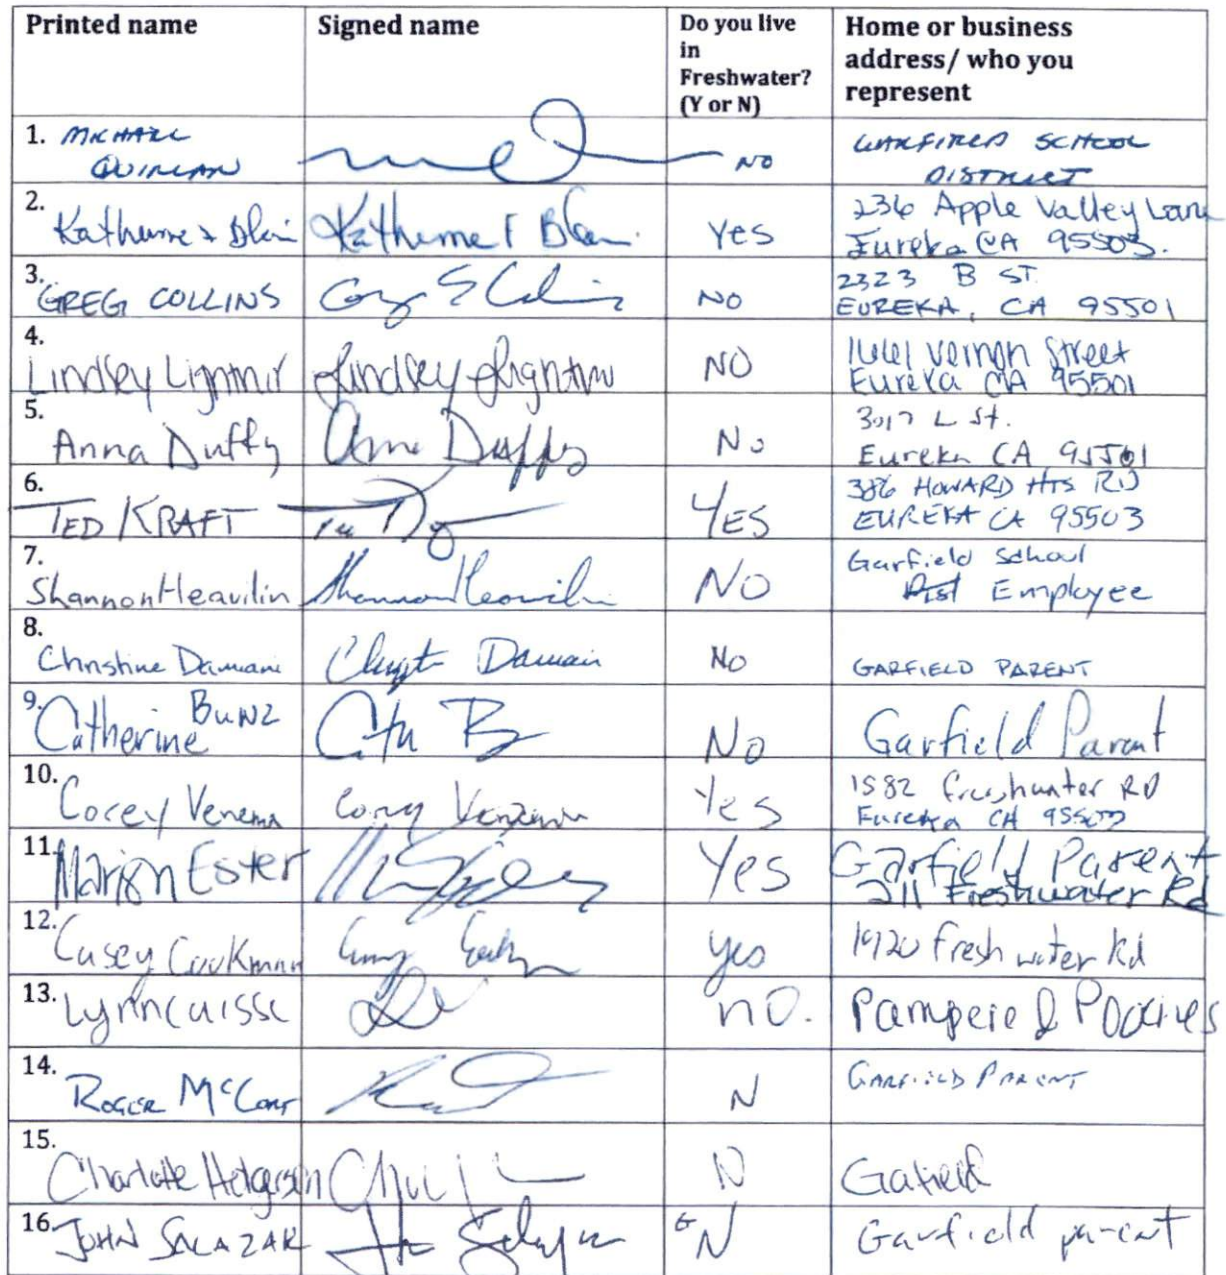 Printed name Signed name Do you live in Freshwater? (Y or N) Home or business address/ who you represent
1. MICHAEL QUINLAN NO GARFIELD SCHOOL DISTRICT
2. Katherine Blair Katherine F Blair Yes 236 Apple Valley Lane
Eureka CA 95503.
3. GREG COLLINS Greg S Collins NO 2323 B ST.
EUREKA, CA 95501
4. Lindsey Lindsey NO Vernon Street
Eureka CA 95501
5. Anna Duffy Anna Duffy No 3017 L St.
Eureka CA 95501
6. TED KRAFT YES 386 HOWARD HTS RD
EUREKA CA 95503
7. Shannon Heavilin Shannon Heavilin NO Garfield School
Dist Employee
8. Christine Damiani Damiani No GARFIELD PARENT
9. Catherine Bunz No Garfield Parent
10. Corey Venema Corey Venema Yes 1582 Freshwater RD
Eureka CA 95503
11. Marion Ester Yes Garfield Parent
211 Freshwater Rd
12. Casey Cookman yes 1920 Freshwater Rd
13. Lynn no. Pampered
14. ROGER N GARFIELD PARENT
15. Charlotte N Gafield
16. JOHN SALAZAR N Garfield parent